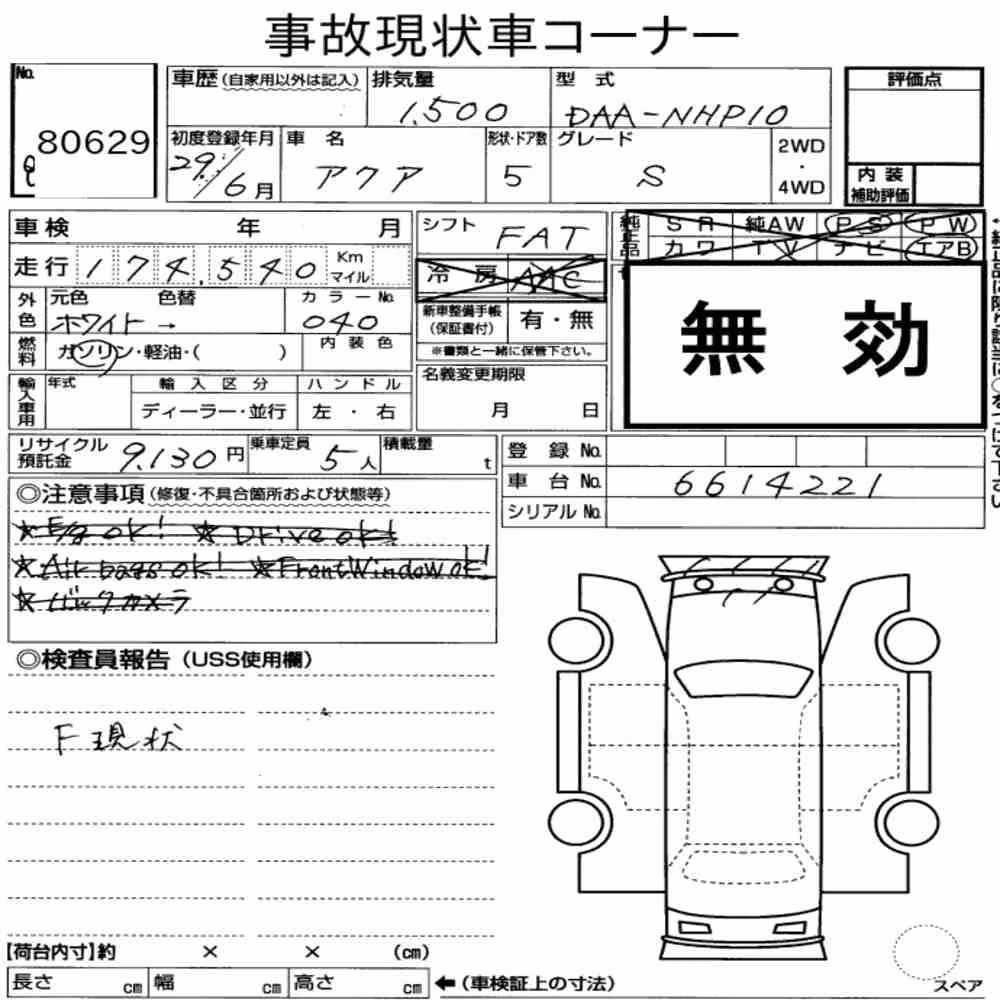 事故現状車コーナー
No.
80629
車歴 (自家用以外は記入)
排気量
1.500
型 式
DAA-NHP10
評価点
初度登録年月
29 / 6月
車 名
アクア
形状・ドア数
5
グレード
S
2WD
・
4WD
内 装
補助評価
車検 年 月
シフト
FAT
純正品
S R 純AW P S P W
カワ T V ナビ エアB
走行 174,540 Km マイル
冷 房 AAC
外色
元色 色替
ホワイト →
カラーNo.
040
新車整備手帳
(保証書付)
有・無
燃料
ガソリン・軽油・( )
内 装 色
※書類と一緒に保管下さい。
無 効
輸入車用
年式
輸 入 区 分
ディーラー・並行
ハ ン ド ル
左 ・右
名義変更期限
月 日
リサイクル
預託金
9.130円
乗車定員
5人
積載量
t
登 録 No.
車 台 No.
6614221
シリアル No.
◎注意事項(修復・不具合箇所および状態等)
☆E/g ok! ☆ Drive ok!
☆Air bags ok! ☆Front Window ok!
☆バックカメラ
◎検査員報告(USS使用欄)
F現状
【荷台内寸】約 × × (cm)
長さ cm 幅 cm 高さ cm
←(車検証上の寸法)
スペア